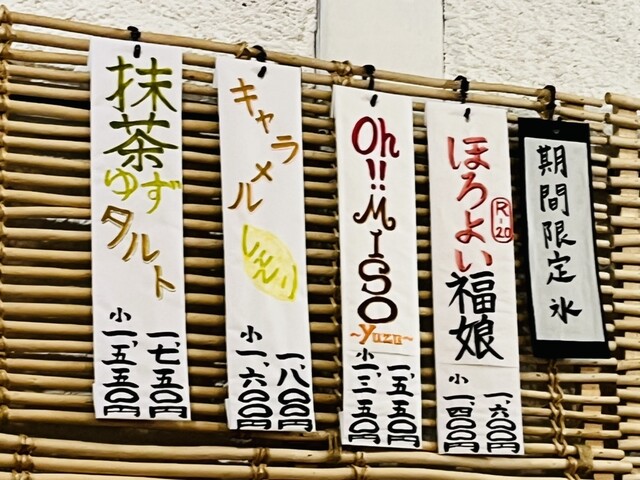 期間限定氷
ほろよい
R-20
福娘
一、六〇〇円
小一、四〇〇円
Oh!!
MISO
~Yuzu~
一、五五〇円
小一、三五〇円
キャラメル
一、八〇〇円
小一、六〇〇円
抹茶
ゆず
タルト
一、七五〇円
小一、五五〇円